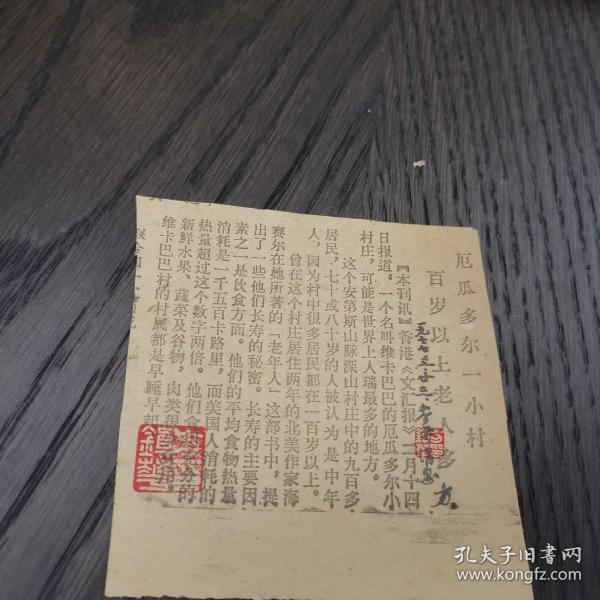 厄瓜多尔一小村
百岁以上老人多
【本刊讯】香港《文汇报》二月十四
日报道:一个名叫维卡巴巴的厄瓜多尔小
村庄,可能是世界上人瑞最多的地方。
这个安第斯山脉深山村庄中的九百多
居民,七十或八十岁的人被认为是中年
人,因为村中很多居民都在一百岁以上。
曾在这个村庄居住两年的北美作家海
赛尔在她所著的「老年人」这部书中,提
出了一些他们长寿的秘密。长寿的主要因
素之一是饮食方面。他们的平均食物热量
消耗是一千五百卡路里,而美国人消耗的
热量超过这个数字两倍。他们
新鲜水果、蔬菜及谷物,肉类很
维卡巴巴村的村民都是早睡早起
孔夫子旧书网
www.kongfz.com